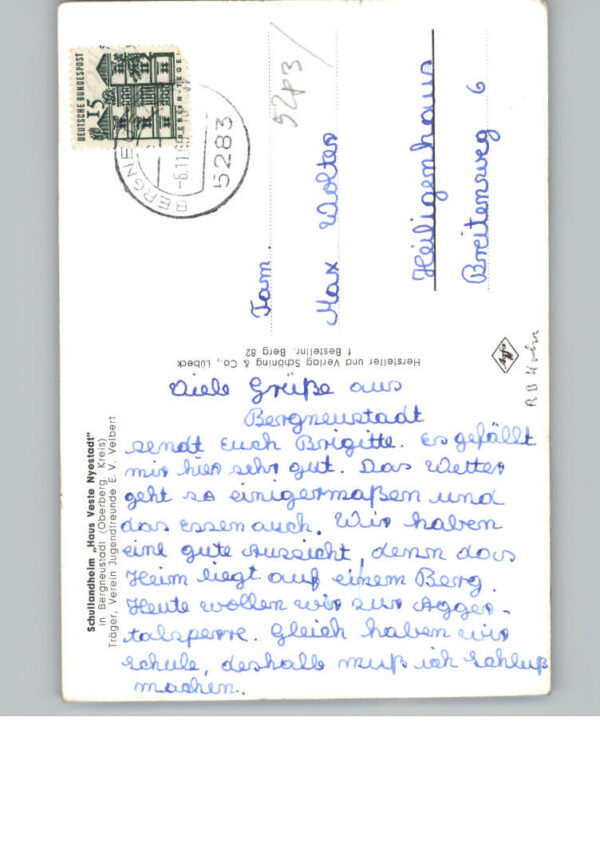 Viele Grüße aus
Bergneustadt
sendt Euch Brigitte. Es gefällt
mir hier sehr gut. Das Wetter
geht so einigermaßen und
das Essen auch. Wir haben
eine gute Aussicht, denn das
Heim liegt auf einem Berg.
Heute wollen wir zur Agger-
talsperre. Gleich haben wir
schule, deshalb muß ich schluß
machen.
Fam.
Max Wolter
Heiligenhaus
Breitenweg 6
DEUTSCHE BUNDESPOST
15
5283
-6.11.6
Schullandheim „Haus Veste Nyestadt"
in Bergneustadt (Oberberg. Kreis)
Träger, Verein Jugendfreunde E. V. Velbert
Hersteller und Verlag Schöning & Co., Lübeck
1 Bestellnr. Berg 82
Agfa